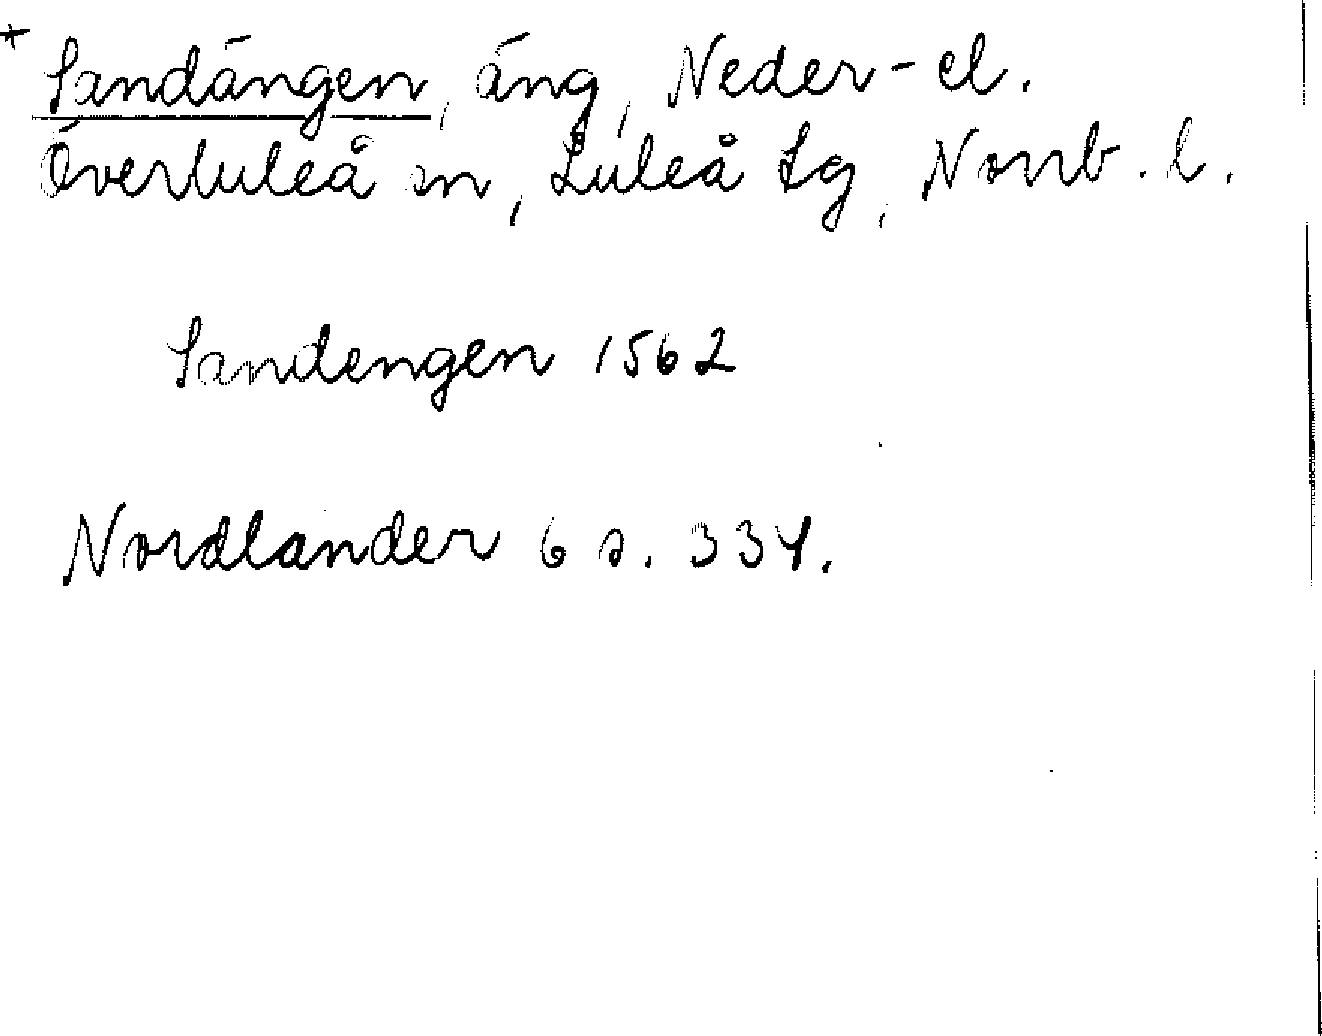 + Sandängen, äng, Neder- el.
Överluleå sn, Luleå tg, Norrb. l.
Sandengen 1562
Nordlander 6 s. 334.